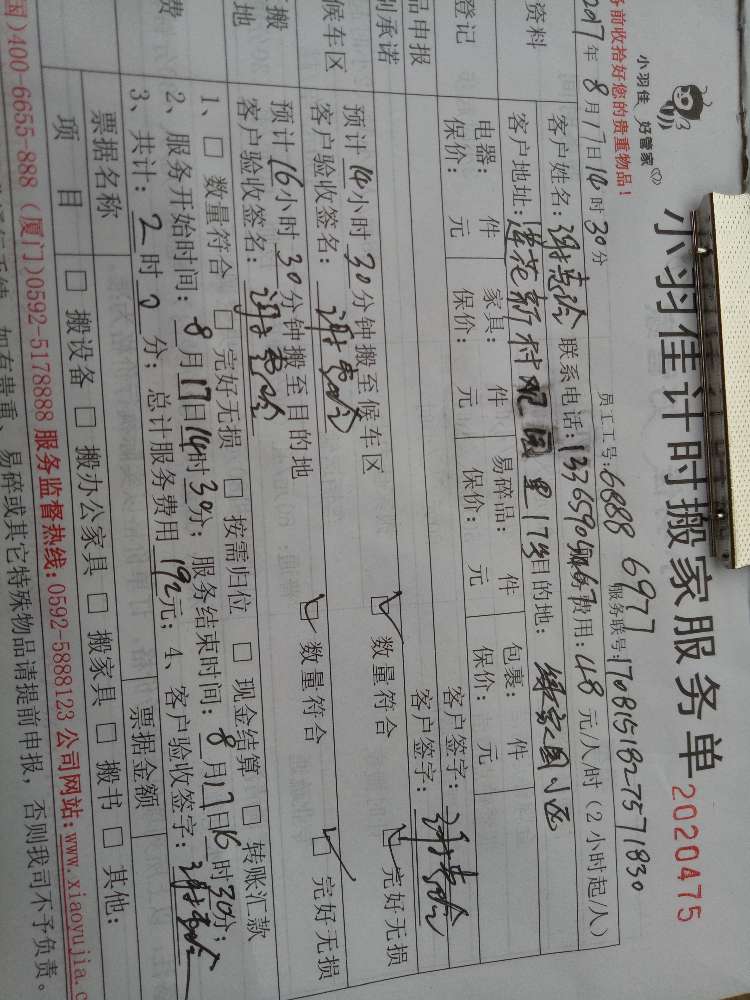 小羽佳 好管家
务前收拾好您的贵重物品!
小羽佳计时搬家服务单
2020475
员工工号:6888 6977 服务联号:1708151827571830
2017年8月17日14时30分
资料
客户姓名: 联系电话: 费用:48元/人/时(2小时起/人)
客户地址:莲花新村观园里17号 目的地: 绿家园小区
登记
电器: 件 家具: 件 易碎品: 件 包裹: 件
保价: 元 保价: 元 保价: 元 保价: 元
品申报
别承诺
客户签字:
客户签字:
候车区
预计14小时30分钟搬至候车区 数量符合 完好无损
客户验收签名:
搬
地
预计16小时30分钟搬至目的地 数量符合 完好无损
客户验收签名:
费
1、□ 数量符合 □ 完好无损 □ 按需归位 □ 现金结算 □ 转账汇款
2、服务开始时间:8月17日14时30分;服务结束时间:8月17日16时30分;
3、共计:2时0分;总计服务费用192元;4、客户验收签字:
票据名称 票据金额
项 目 □ 搬设备 □ 搬办公家具 □ 搬家具 □ 搬书 □ 其他:
国)400-6655-888 (厦门)0592-5178888 服务监督热线:0592-5888123 公司网站:www.xiaoyujia.c
如有贵重、易碎或其它特殊物品请提前申报,否则我司不予负责。